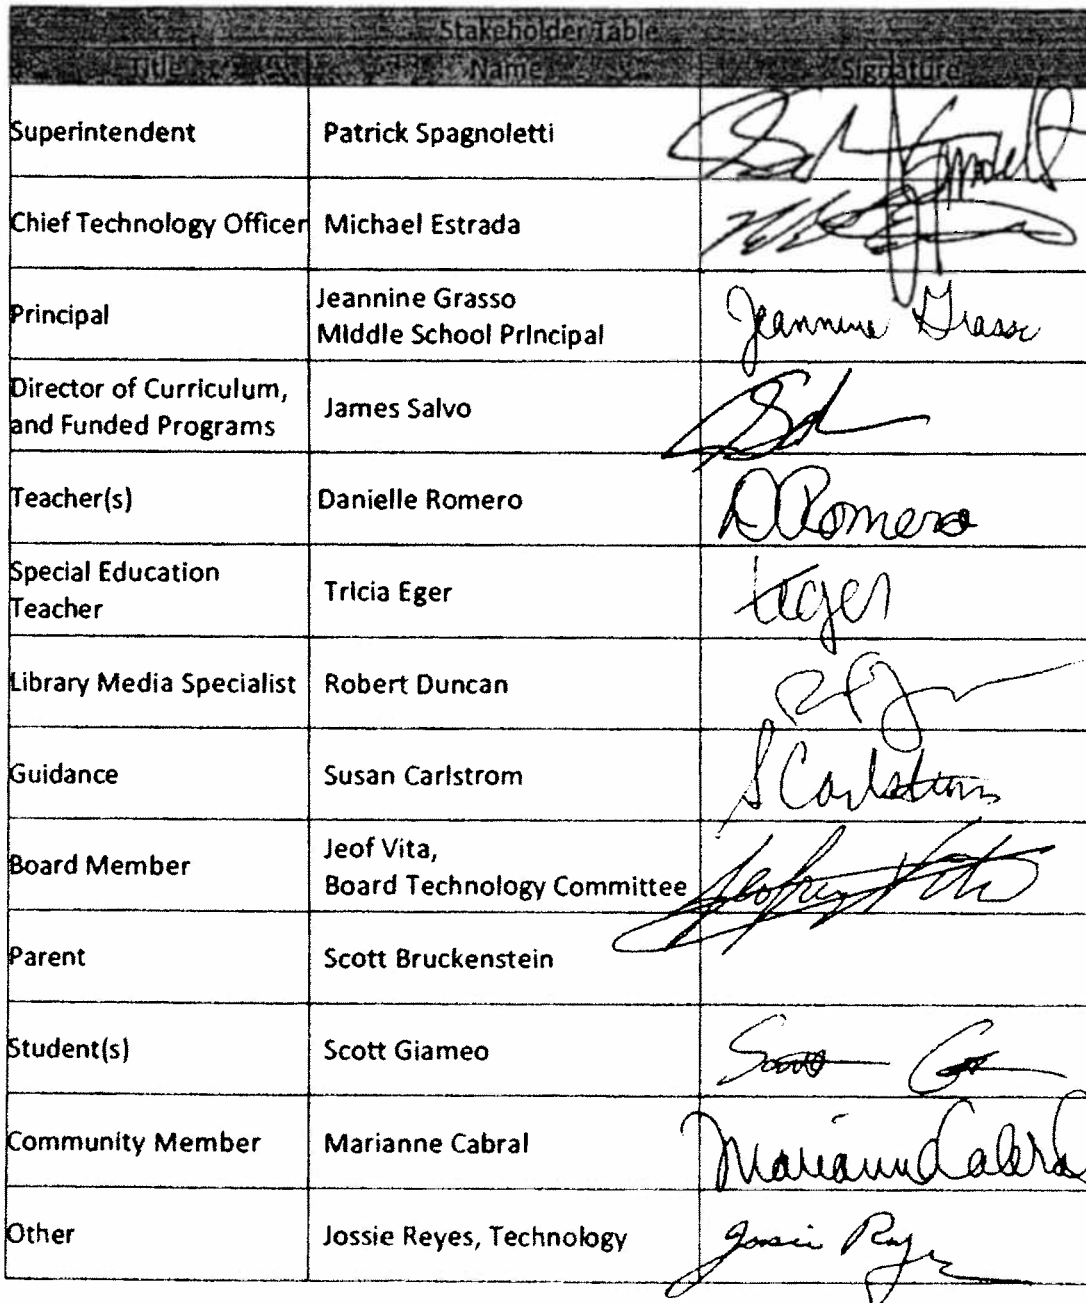 Stakeholder Table
Title Name Signature
Superintendent Patrick Spagnoletti
Chief Technology Officer Michael Estrada
Principal Jeannine Grasso
Middle School Principal Jeannine Grasso
Director of Curriculum,
and Funded Programs James Salvo
Teacher(s) Danielle Romero D Romero
Special Education
Teacher Tricia Eger teger
Library Media Specialist Robert Duncan
Guidance Susan Carlstrom S Carlstrom
Board Member Jeof Vita,
Board Technology Committee Jeofrey Vita
Parent Scott Bruckenstein
Student(s) Scott Giameo Scott
Community Member Marianne Cabral Marianne Cabral
Other Jossie Reyes, Technology Jossie Reyes